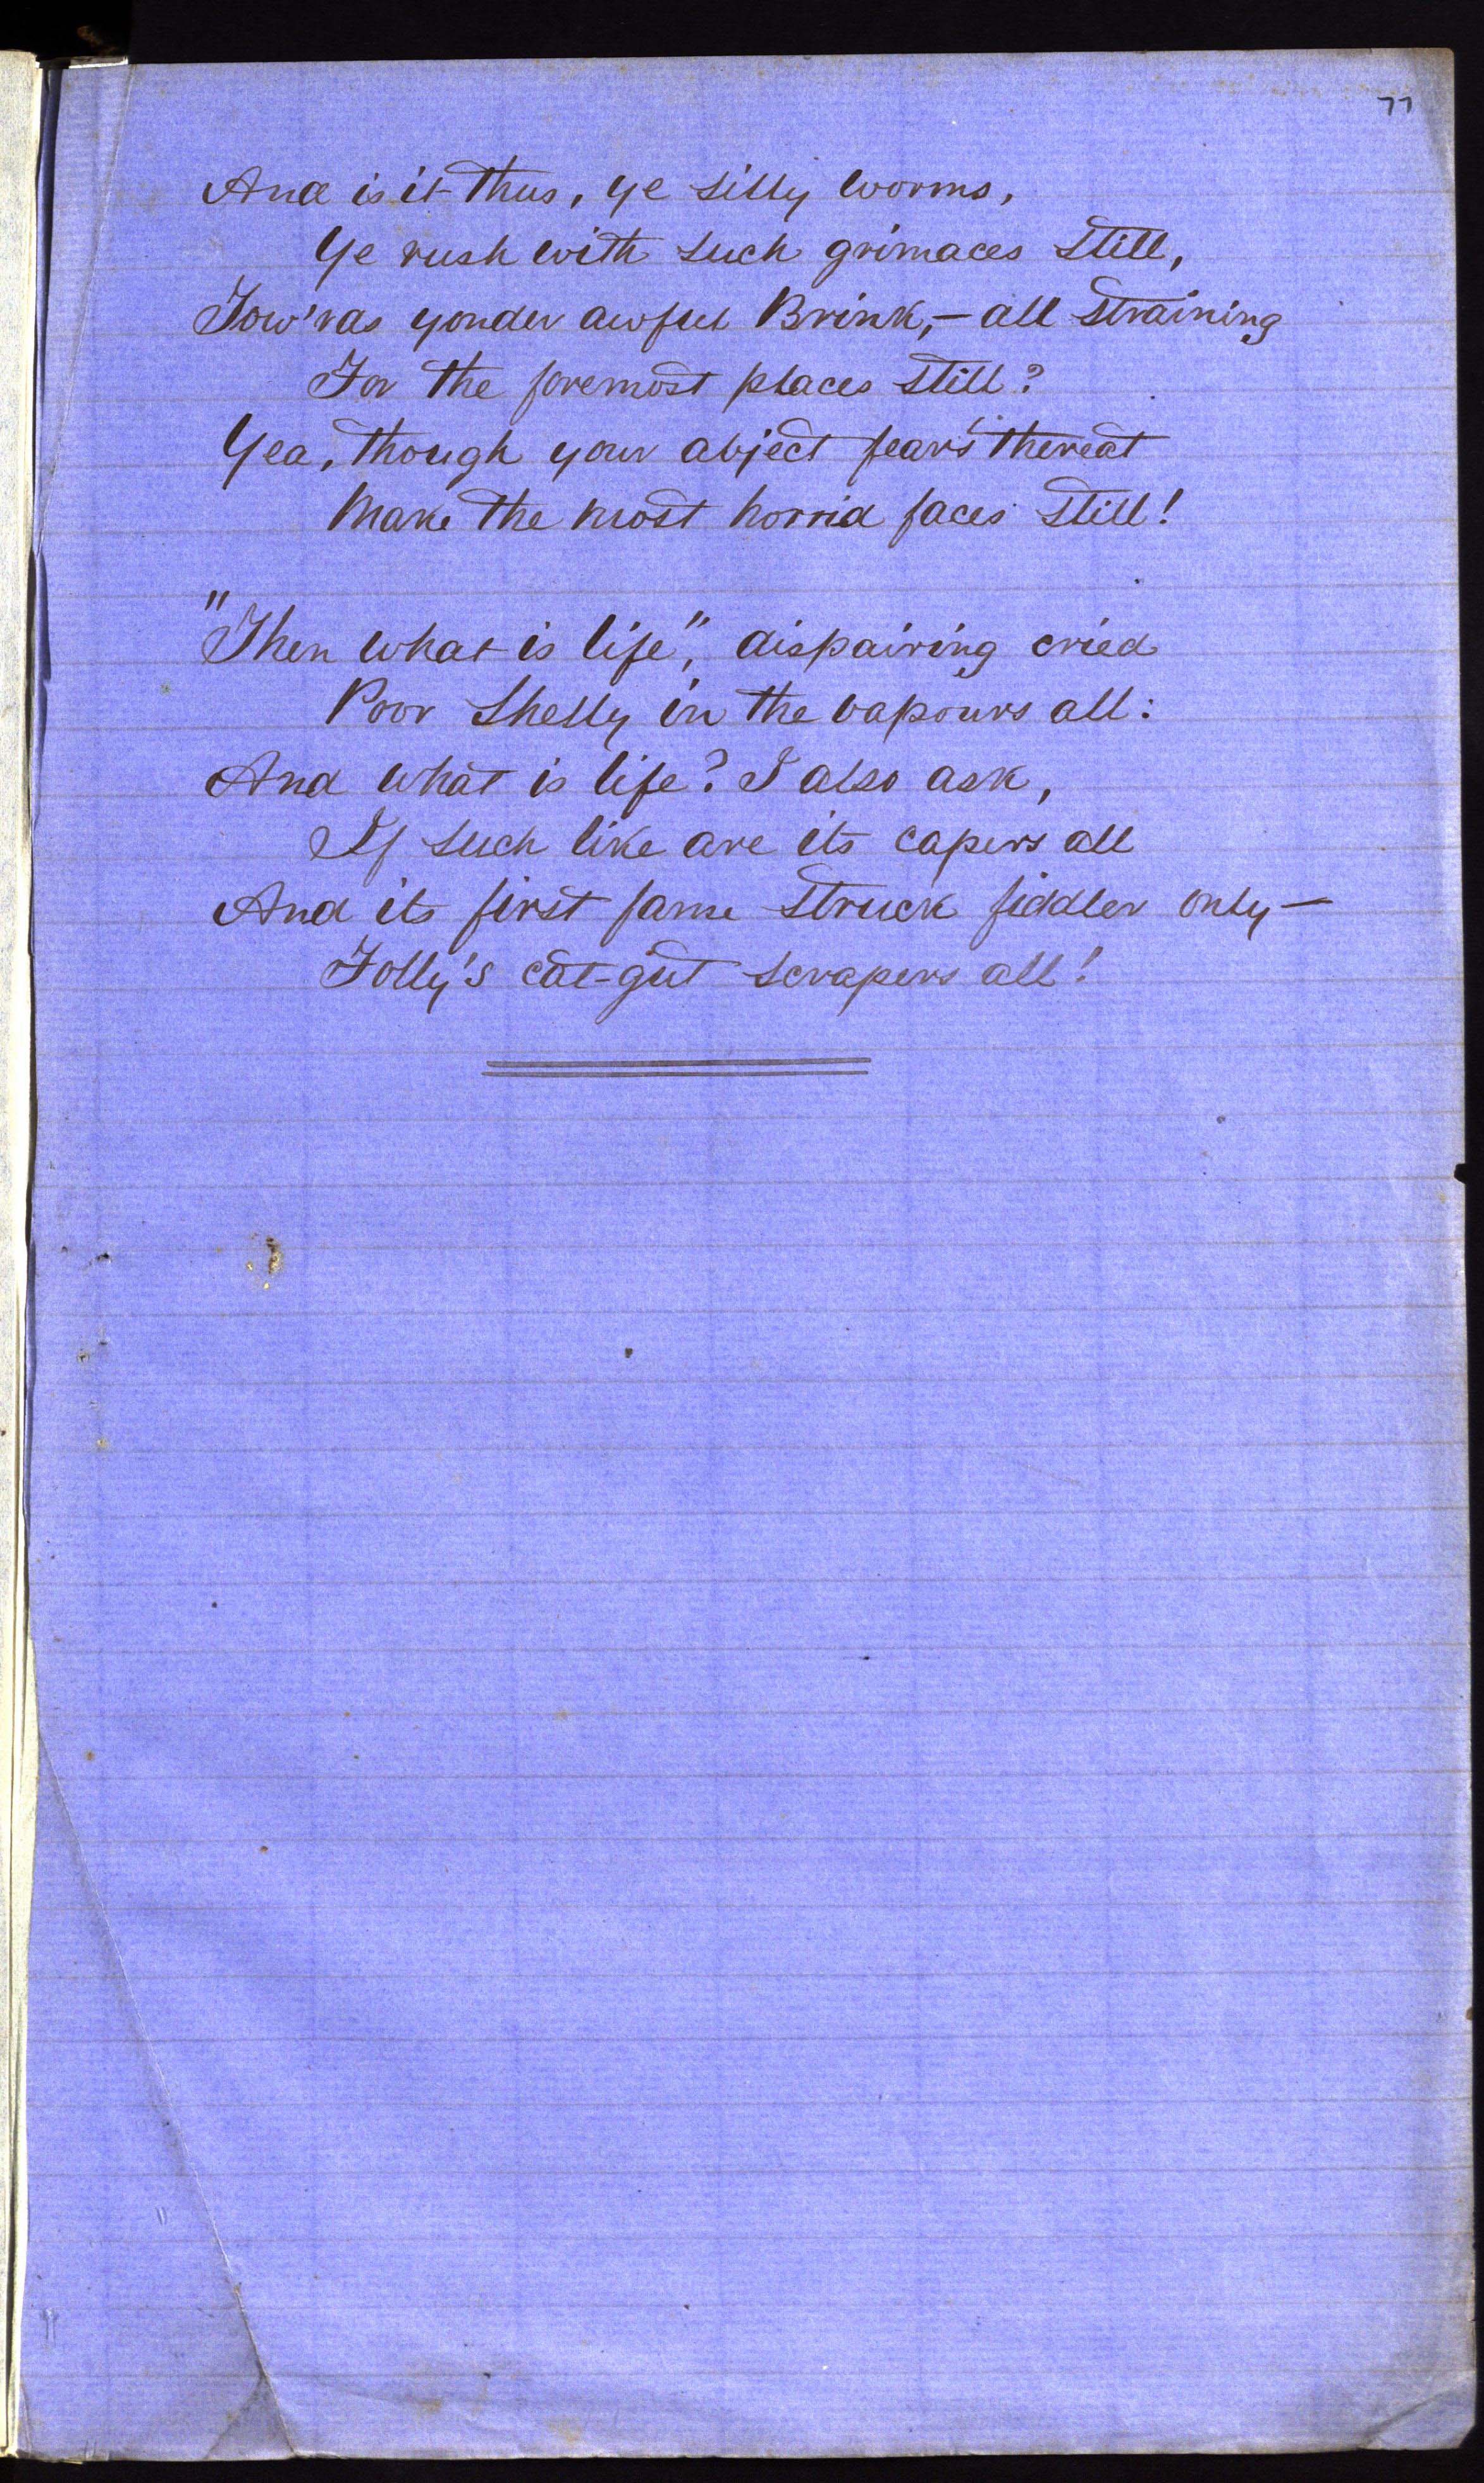 77
And is it thus, ye silly worms,
Ye rush with such grimaces still,
Tow'rds yonder awful Brink,—all straining
For the foremost places still?
Yea, though your abject fears thereat
Make the most horrid faces still!
"Then what is life", dispairing cried
Poor Shelly in the vapours all:
And what is life? I also ask,
If such like are its capers all
And its first fame struck fiddler only—
Folly's cat-gut scrapers all!